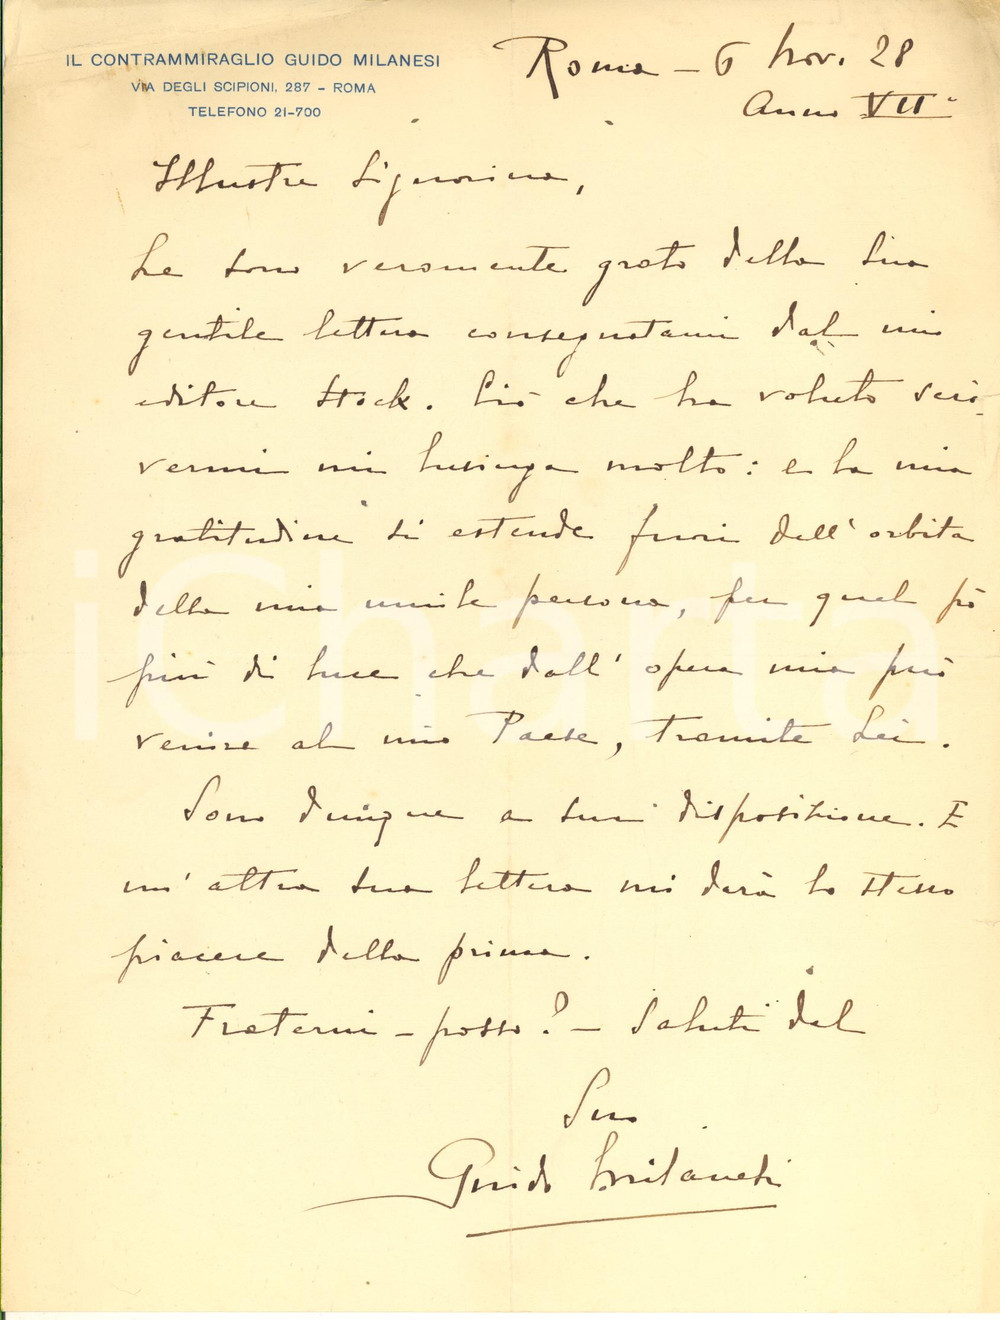 IL CONTRAMMIRAGLIO GUIDO MILANESI
VIA DEGLI SCIPIONI, 287 - ROMA
TELEFONO 21-700
Roma - 6 Nov. 28
Anno VII°
Illustre Signorina,
Le sono veramente grato della Sua
gentile lettera consegnatami dal mio
editore Stock. Ciò che ha voluto scri-
vermi mi lusinga molto: e la mia
gratitudine si estende fuori dell'orbita
della mia umile persona, per quel pò
più di luce che dall'opera mia può
venire al mio Paese, tramite Lei.
Sono dunque a sua disposizione. E
un'altra sua lettera mi darà lo stesso
piacere della prima.
Fraterni - posso? - Saluti dal
Suo
Guido Milanesi
iCharta